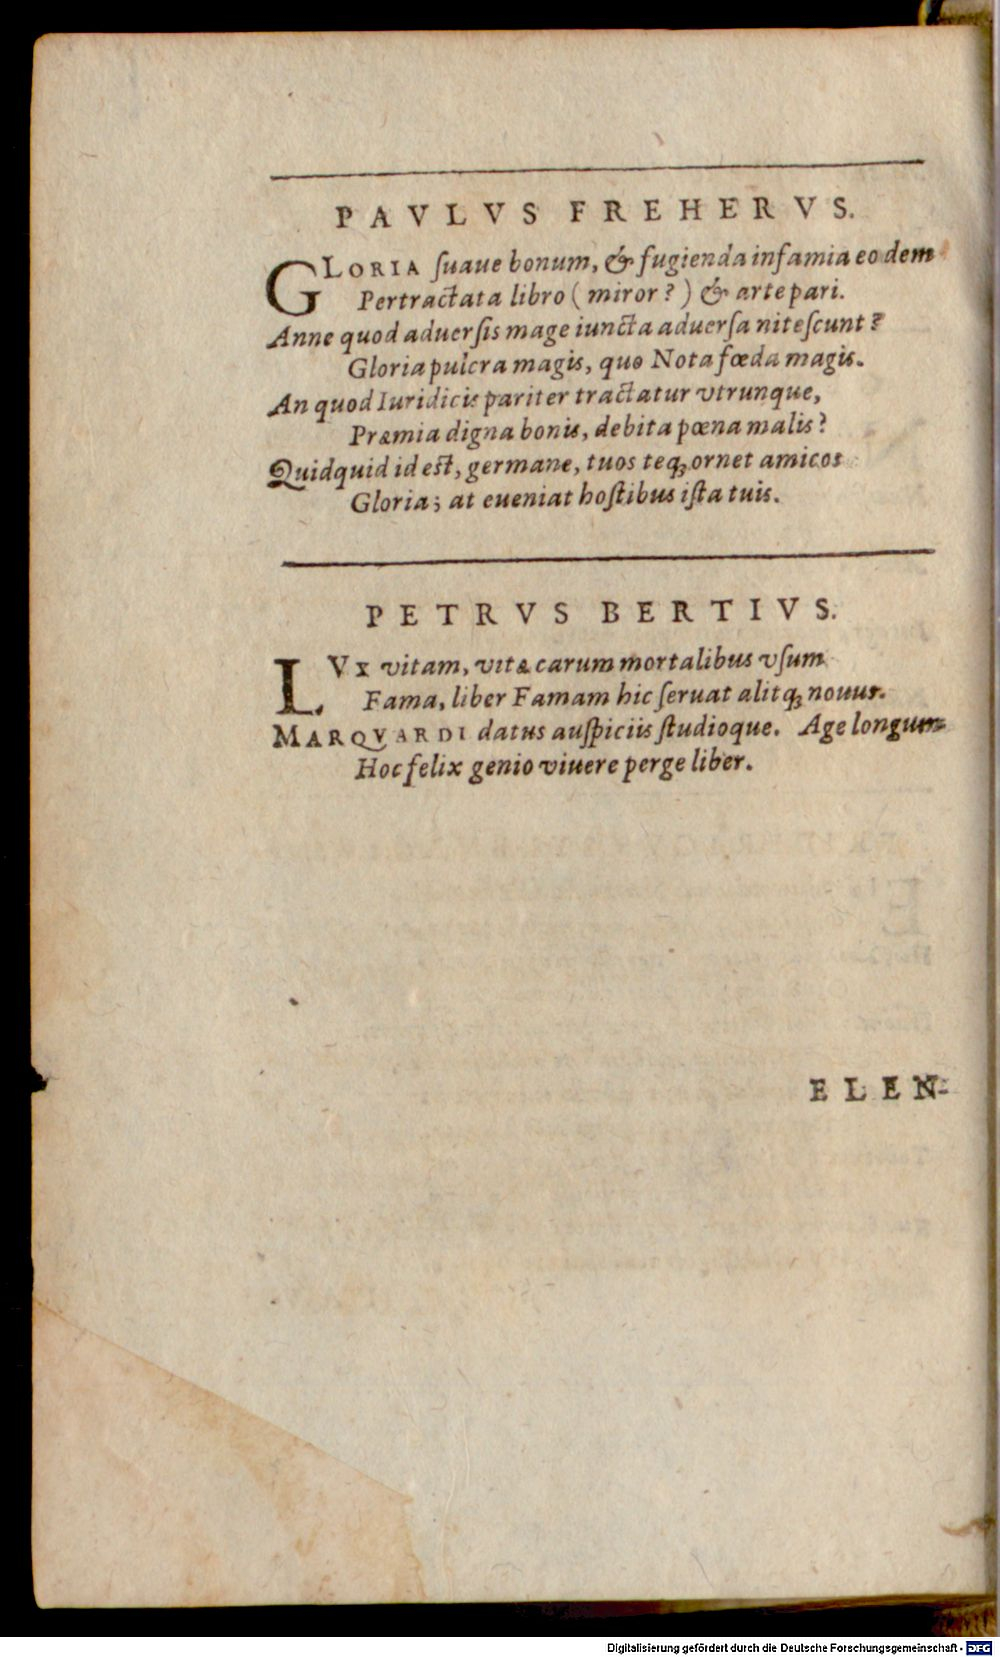 PAVLVS FREHERVS.
GLORIA ſuaue bonum, & fugienda infamia eodem
Pertractata libro ( miror ? ) & arte pari.
Anne quod aduerſis mage iuncta aduerſa niteſcunt ?
Gloria pulcra magis, quo Nota fœda magis.
An quod Iuridicis pariter tractatur vtrunque,
Præmia digna bonis, debita pœna malis ?
Quidquid id est, germane, tuos teq́; ornet amicos
Gloria; at eueniat hoſtibus iſta tuis.
PETRVS BERTIVS.
LVX vitam, vitæ carum mortalibus vſum
Fama, liber Famam hic ſeruat alitq́; nouus.
MARQVARDI datus auſpiciis ſtudioque. Age longum
Hoc felix genio viuere perge liber.
ELEN-
Digitalisierung gefördert durch die Deutsche Forschungsgemeinschaft - DFG